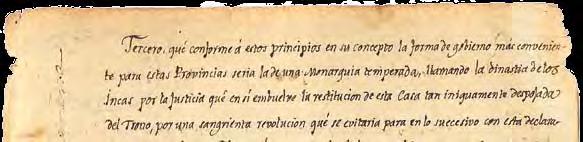 Tercero, qué conforme á estos principios en su concepto la forma de gobierno más convenien-
te para estas Provincias seria la de una Monarquia temperada, llamando la dinastia de los
Incas por la Justicia qué en si embuelve la restitucion de esta Casa tan iniquamente despojada
del Trono, por una sangrienta revolucion qué se evitaria para en lo succesivo con esta declara-